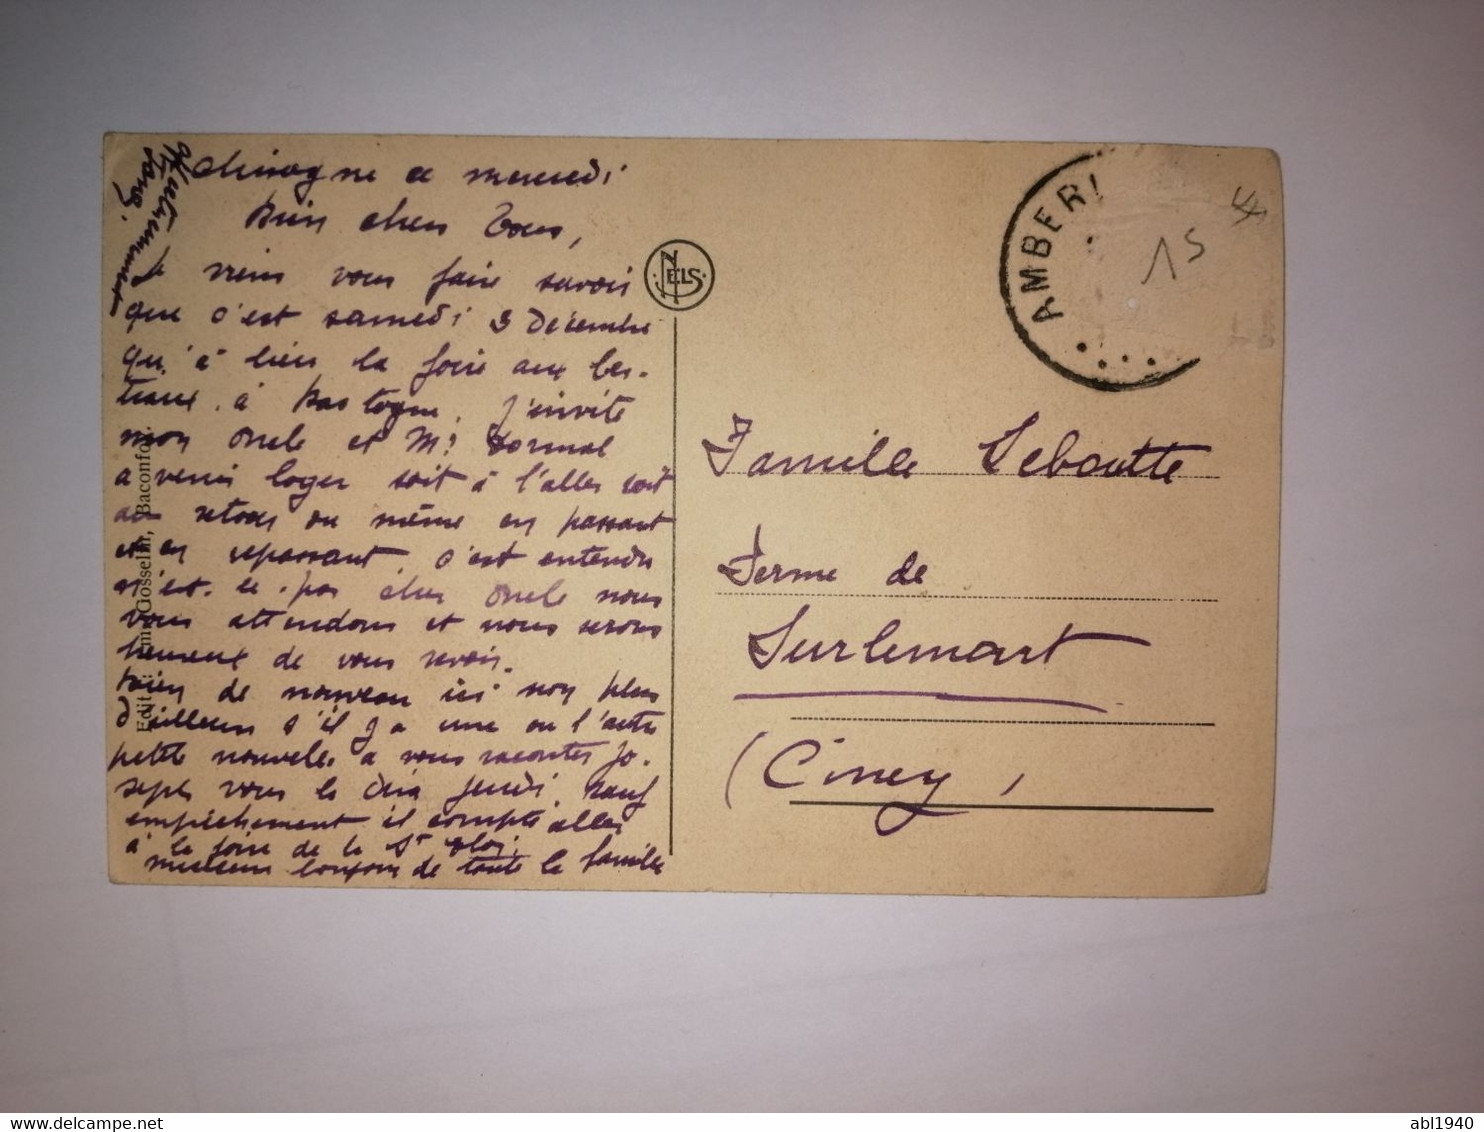 Chisogne ce mercredi
Bien chers Tous,
Je viens vous faire savoir
que c'est samedi 3 Décembre
qu'à lieu la foire aux bes-
tiaux à Bastogne, j'invite
mon Oncle et Mr Dormal
a venir loger soit à l'aller soit
au retour ou même en passant
et en repassant, c'est entendu
n'est-ce-pas cher Oncle nous
vous attendons et nous serons
heureux de vous revoir.
rien de nouveau ici non plus
d'ailleurs s'il y a une ou l'autre
petite nouvelle a vous raconter Jo-
seph vous le dira jeudi, sauf
empêchement il compte aller
à la foire de la St Eloi,
meilleurs de toute la famille
NELS
AMBERL
15
Famille Leboutte
Ferme de
Surlemont
(Ciney)
Gosselin, Baconfoi
abl1940
delcampe.net